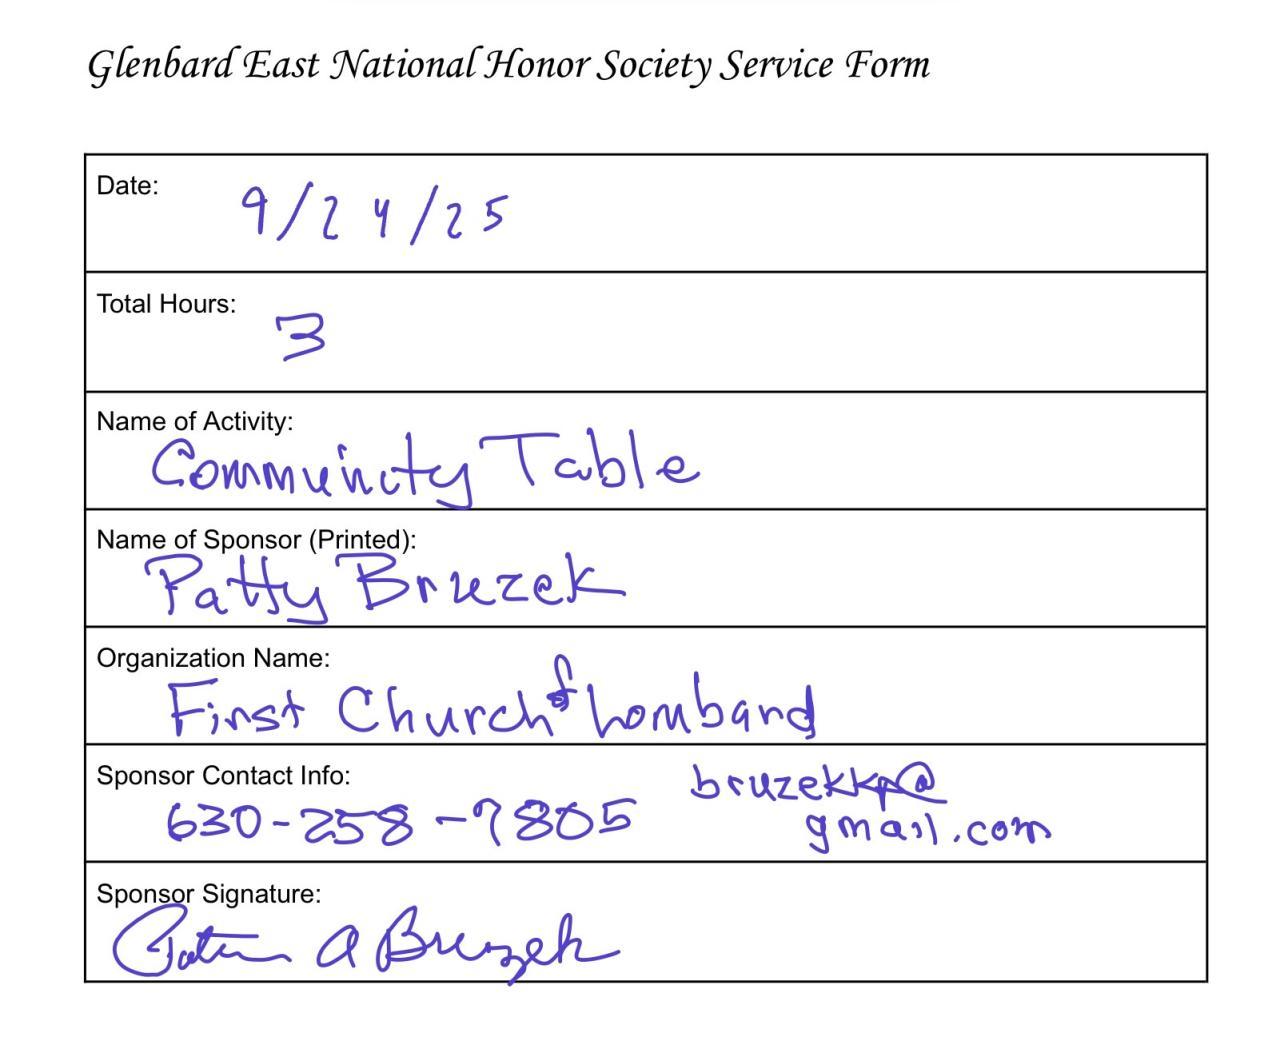 Glenbard East National Honor Society Service Form
Date:
9/24/25
Total Hours:
3
Name of Activity:
Commuincty Table
Name of Sponsor (Printed):
Patty Bruzek
Organization Name:
First Church of Lombard
Sponsor Contact Info:
630-258-9805
bruzekkp@
gmail.com
Sponsor Signature:
A Bruzek